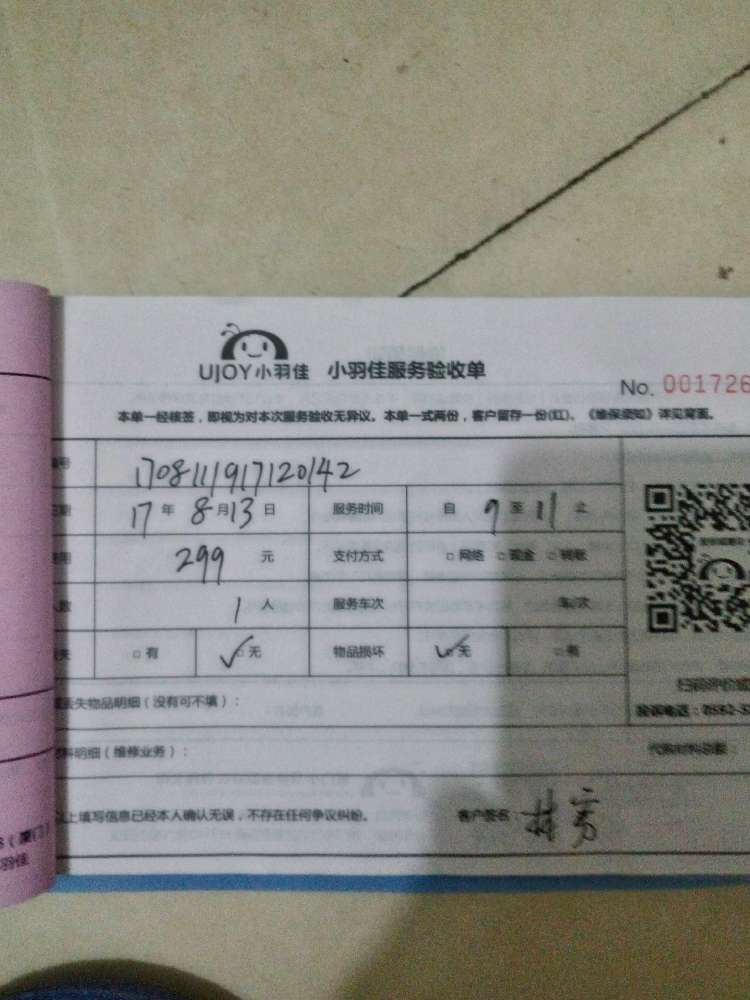 UJOY小羽佳 小羽佳服务验收单
No. 001726
本单一经核签，即视为对本次服务验收无异议。本单一式两份，客户留存一份(红)、《维保须知》详见背面。
号 170811191712​0142
期 17年 8月13日 服务时间 自 9 至 11 止
用 299 元 支付方式 □网络 □现金 □转账
人数 1 人 服务车次 车/次
失 □有 ✓□无 物品损坏 ✓□无 □有
扫码评价或
丢失物品明细（没有可不填）： 投诉电话：0592-5
料明细（维修业务）： 代购材料总额：
以上填写信息已经本人确认无误，不存在任何争议纠纷。 客户签名：林
（厦门）
羽佳